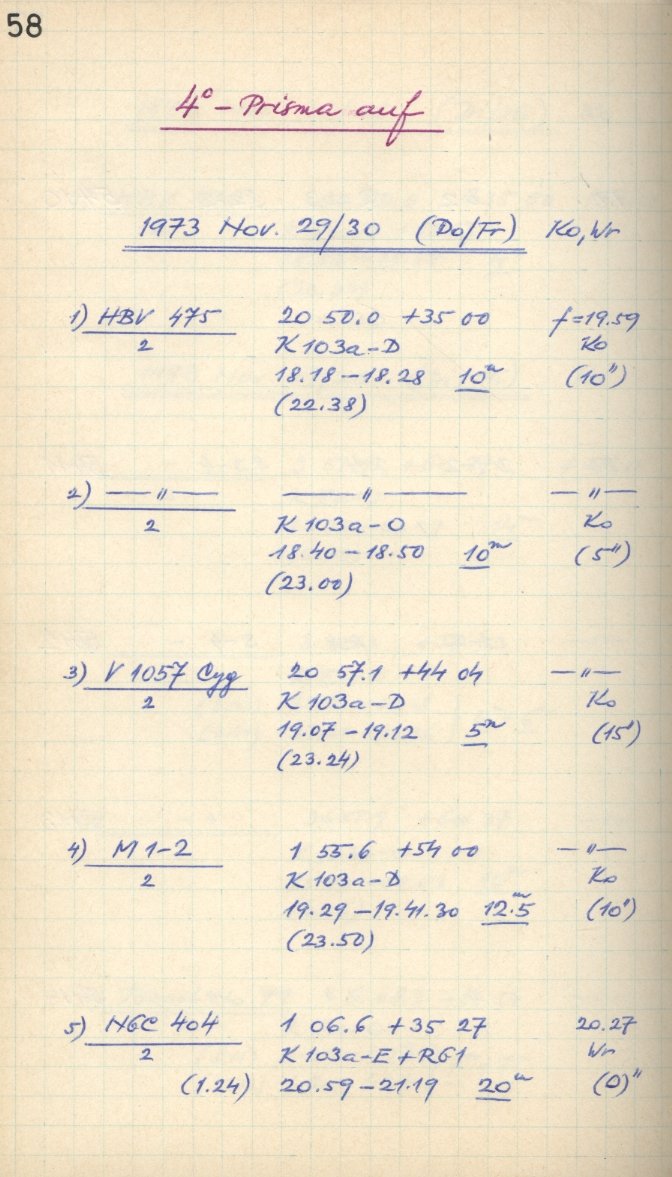 58
4° - Prisma auf
1973 Nov. 29/30 (Do/Fr) Ko, Wr
1) HBV 475 20 50.0 +35 00 f=19.59
2 K 103a-D Ko
18.18 - 18.28 10ᵐ (10")
(22.38)
2) — " — — " — — " —
2 K 103a-O Ko
18.40 - 18.50 10ᵐ (5")
(23.00)
3) V 1057 Cyg 20 57.1 +44 04 — " —
2 K 103a-D Ko
19.07 - 19.12 5ᵐ (15')
(23.24)
4) M 1-2 1 55.6 +54 00 — " —
2 K 103a-D Ko
19.29 - 19.41.30 12ᵐ.5 (10')
(23.50)
5) NGC 404 1 06.6 +35 27 20.27
2 K 103a-E + RG1 Wr
(1.24) 20.59 - 21.19 20ᵐ (0)"